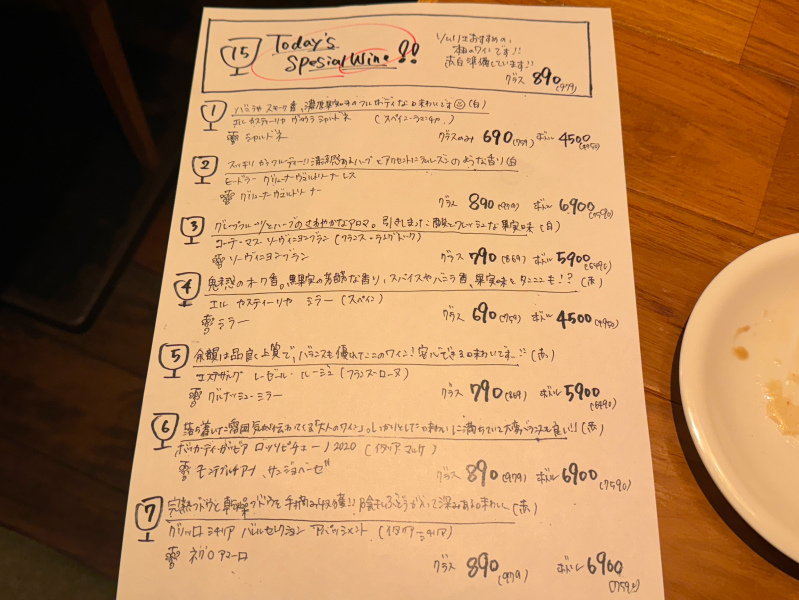 15 Today's Spesial Wine!!
おすすめの、
ワインです!!
赤白準備しています!!
グラス 890 (979)
1 バニラ スモーク香、濃厚果実味のフルボディな味わいです (白)
エル カスティーリャ シャルドネ (スペイン・ラマンチャ)
シャルドネ グラスのみ 690 (759) ボトル 4500 (4950)
2 スッキリ フルーティー!! 清涼感あるハーブとアクセントに のような香り (白)
グリューナーヴェルトリーナー
グリューナーヴェルトリーナー グラス 890 (979) ボトル 6900 (7590)
3 グレープフルーツとハーブのさわやかなアロマ。引きしまった酸とフレッシュな果実味 (白)
コーテ・マス ソーヴィニヨンブラン (フランス・ラングドック)
ソーヴィニヨンブラン グラス 790 (869) ボトル 5900 (6490)
4 オーク香。黒果実の芳醇な香り、スパイスやバニラ香、果実味とタンニンも!? (赤)
エル カスティーリャ シラー (スペイン)
シラー グラス 690 (759) ボトル 4500 (4950)
5 余韻は品良く上質で、バランスも優れたこのワイン! 安心できる味わいです!! (赤)
レゼール・ルージュ (フランス・ローヌ)
グルナッシュ・シラー グラス 790 (869) ボトル 5900 (6490)
6 落ち着いた雰囲気が伝わってくる「大人のワイン」。しっかりとした味わいに満ちていて大変バランスも良い!! (赤)
ロッソピチェーノ 2020 (イタリア マルケ)
モンテプルチアーノ、サンジョベーゼ グラス 890 (979) ボトル 6900 (7590)
7 完熟ブドウと乾燥ブドウを手摘み収穫!! 陰干しぶどうが入って深みある味わい (赤)
グリッロ シチリア バレルセレクション アパッシメント (イタリア・シチリア)
ネグロアマーロ グラス 890 (979) ボトル 6900 (7590)